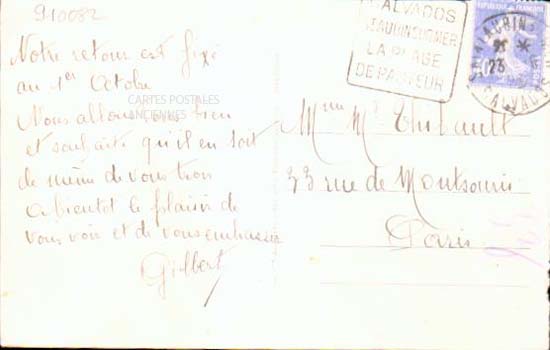 910082
Notre retour est fixé
au 1er Octobre
Nous allons bien
et souhaite qu'il en soit
de même de vous trois
a bientot le plaisir de
vous voir et de vous embrasser
Gilbert
CARTES POSTALES
ANCIENNES
CALVADOS
ST AUBIN SUR MER
LA PLAGE
DE PASTEUR
ST AUBIN
23
CALVADOS
Mme Thibault
33 rue de Montsouris
Paris